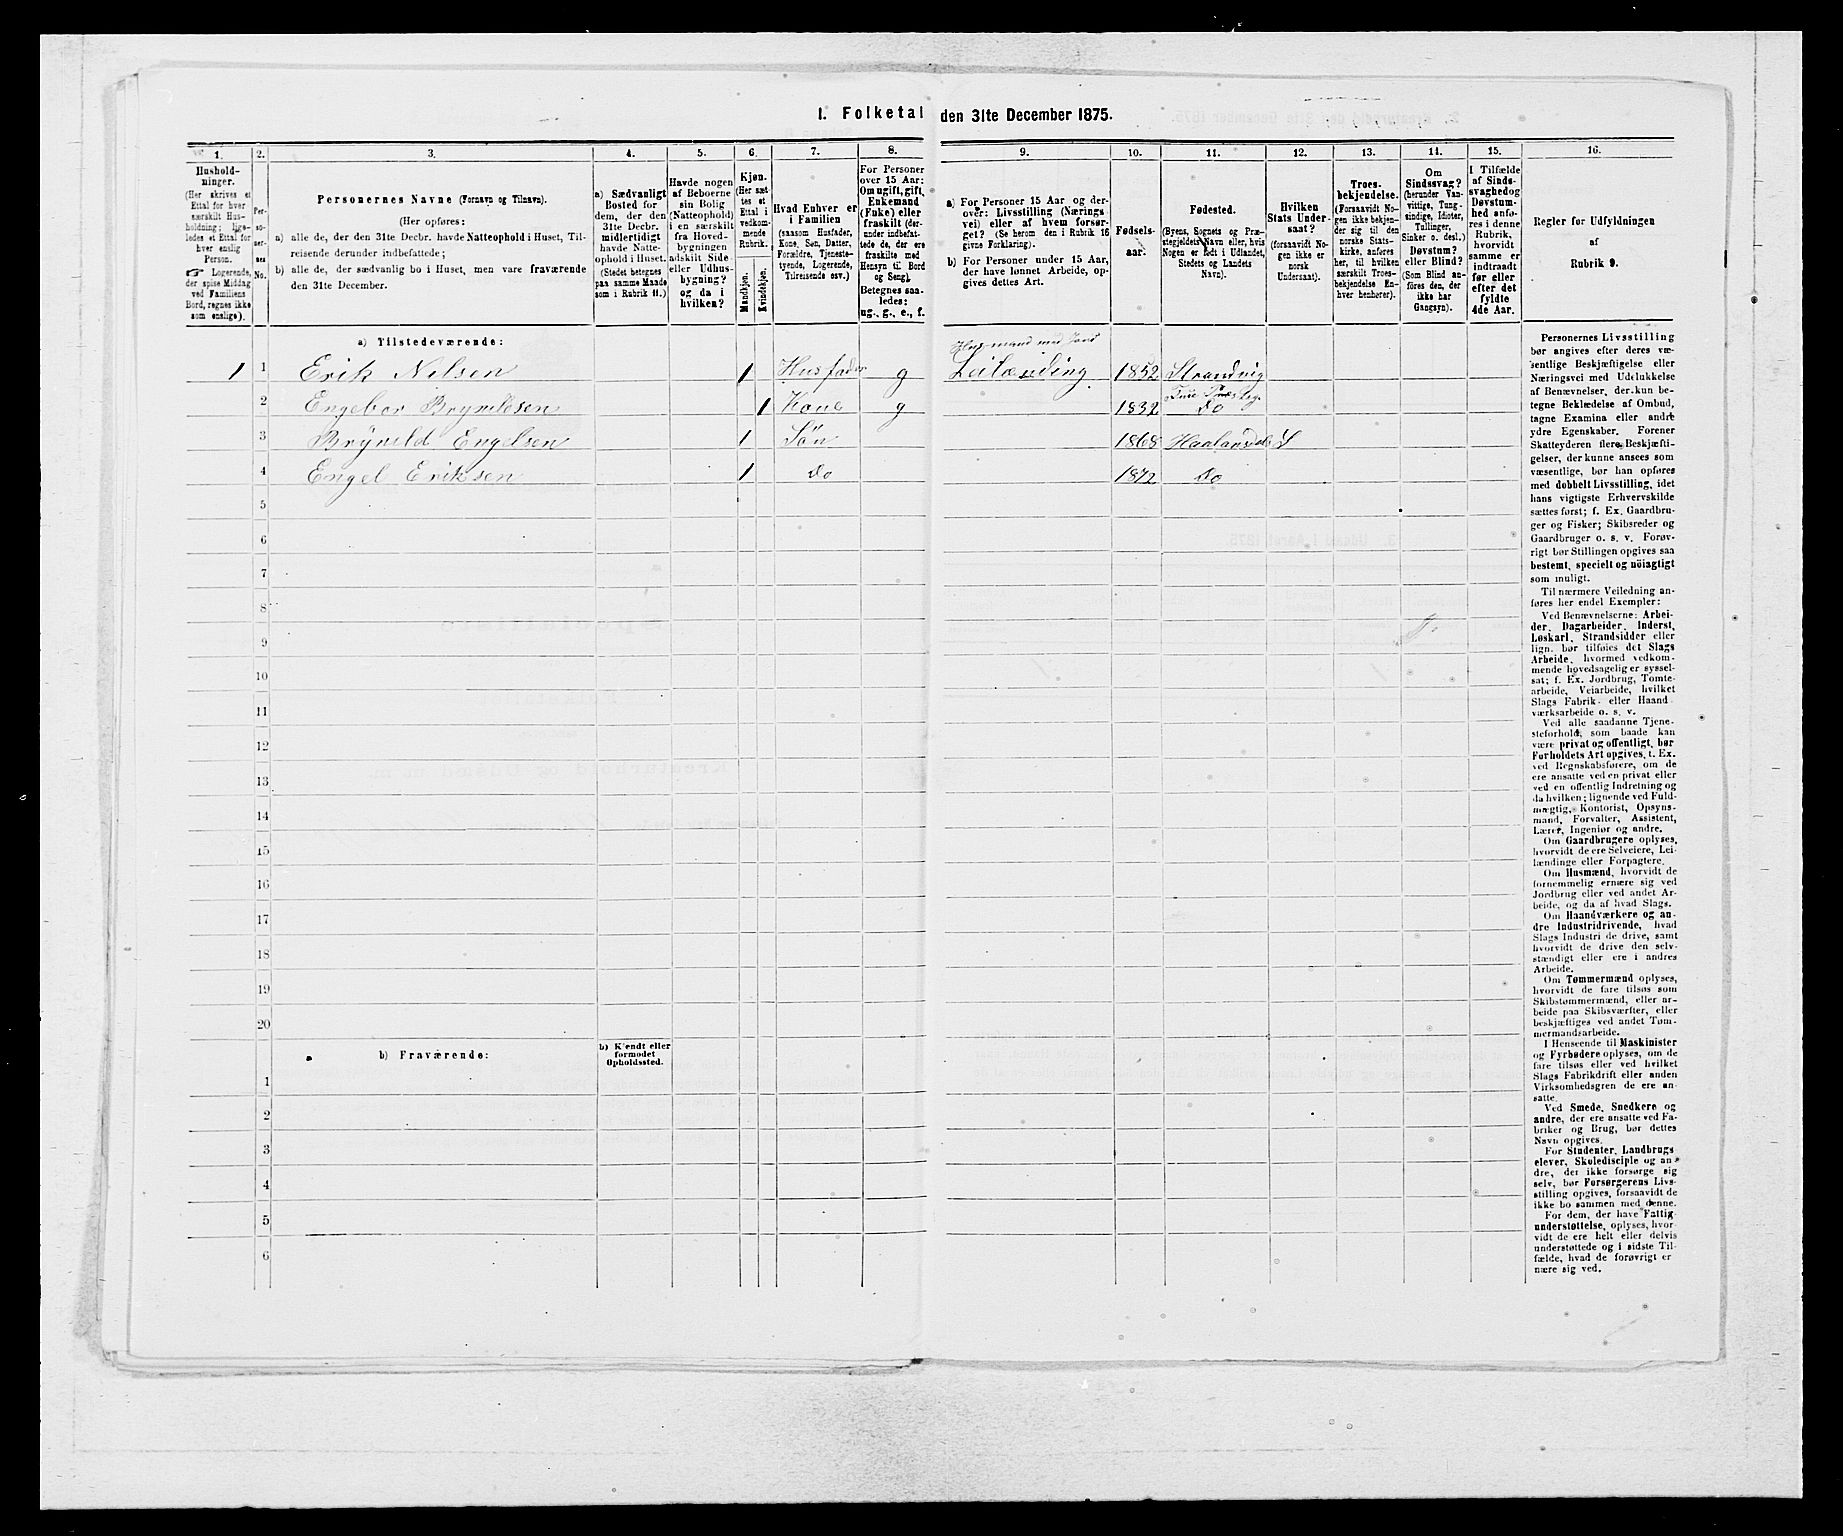 1. Folketal den 31te December 1875.
1. 2. 3. 4. 5. 6. 7. 8. 9. 10. 11. 12. 13. 14. 15. 16.
Hushold-
ninger.
(Her skrives et
Ettal for hver
særskilt Hus-
holdning; lige-
ledes et Ettal for
hver enslig
Person.
☞ Logerende,
der spise Middag
ved Familiens
Bord, regnes ikke
som enslige).
Per-
so-
ner-
nes
No.
Personernes Navne (Fornavn og Tilnavn).
(Her opføres:
a) alle de, der den 31te Decbr. havde Natteophold i Huset, Til-
reisende derunder indbefattede;
b) alle de, der sædvanlig bo i Huset, men vare fraværende
den 31te December.
a) Sædvanligt
Bosted for
dem, der den
31te Decbr.
midlertidigt
havde Natte-
ophold i Huset.
(Stedet betegnes
paa samme Maade
som i Rubrik 11.)
Havde nogen
af Beboerne
sin Bolig
(Natteophold)
i en særskilt
fra Hoved-
bygningen
adskilt Side-
eller Udhus-
bygning?
og da i
hvilken?
Kjøn.
(Her sæt-
tes et
Ettal i
vedkom-
mende
Rubrik.
Mandkjøn.
Kvindekjøn.
Hvad Enhver er
i Familien
(saasom Husfader,
Kone, Søn, Datter,
Forældre, Tjeneste-
tyende, Logerende,
Tilreisende osv.)
For Personer
over 15 Aar:
Om ugift, gift,
Enkemand
(Enke) eller
fraskilt (der-
under indbefat-
tede de, der ere
fraskilte med
Hensyn til Bord
og Seng).
Betegnes saa-
ledes:
ug., g., e., f.
a) For Personer 15 Aar og der-
over: Livsstilling (Nærings-
vei) eller af hvem forsør-
get? (Se herom den i Rubrik 16
givne Forklaring).
b) For Personer under 15 Aar,
der have lønnet Arbeide, op-
gives dettes Art.
Fødsels-
aar.
Fødested.
(Byens, Sognets og Præ-
stegjeldets Navn eller, hvis
Nogen er født i Udlandet,
Stedets og Landets
Navn).
Hvilken
Stats Under-
saat?
(forsaavidt No-
gen ikke er
norsk
Undersaat).
Troes-
bekjendelse.
(Forsaavidt No-
gen ikke bekjen-
der sig til den
norske Stats-
kirke, anføres
her, til hvilken
særskilt Troes-
bekjendelse En-
hver henhører).
Om
Sindssvag?
(herunder Van-
vittige, Tung-
sindige, Idioter,
Tullinger,
Sinker o. desl.)
Døvstum?
eller Blind?
(Som Blind an-
føres den, der
ikke har
Gangsyn).
I Tilfælde
af Sinds-
svaghed og
Døvstum-
hed anfø-
res i denne
Rubrik,
hvorvidt
samme er
indtraadt
før eller
efter det
fyldte
4de Aar.
Regler for Udfyldningen
af
Rubrik 9.
a) Tilstedeværende:
Husmand med Jord
1 1 Erik Nilsen 1 Husfader g Leilænding 1852 Strandvig
2 Engebor Brynildsen 1 Kone g 1832 Do
3 Brynild Engelsen 1 Søn 1868 Haalandsdal S
4 Engel Eriksen 1 do 1872 do
5
6
7
8
9
10
11
12
13
14
15
16
17
18
19
20
b) Fraværende:
b) Kjendt eller
formodet
Opholdssted.
1
2
3
4
5
6
Personernes Livsstilling
bør angives efter deres væ-
sentlige Beskjæftigelse eller
Næringsvei med Udelukkelse
af Benævnelser, der kun be-
tegne Beklædelse af Ombud,
tagne Examina eller andre
ydre Egenskaber. Forener
Skatteyderen flere Beskjæfti-
gelser, der kunne ansees som
væsentlige, bør han opføres
med dobbelt Livsstilling, idet
hans vigtigste Erhvervskilde
sættes først; f. Ex. Gaardbru-
ger og Fisker; Skibsreder og
Gaardbruger o. s. v. Forøv-
rigt bør Stillingen opgives saa
bestemt, specielt og nöiagtigt
som muligt.
Til nærmere Veiledning an-
føres her endel Exempler:
Ved Benævnelserne: Arbei-
der, Dagarbeider, Inderst,
Løskarl, Strandsidder eller
lign. bør tilføies det Slags
Arbeide, hvormed vedkom-
mende hovedsagelig er syssel-
sat; f. Ex. Jordbrug, Tomte-
arbeide, Veiarbeide, hvilket
Slags Fabrik- eller Haand
værksarbeide o. s. v.
Ved alle saadanne Tjene-
steforhold, som baade kan
være privat og offentligt, bør
Forholdets Art opgives, t. Ex.
ved Regnskabsførere, om de
ere ansatte ved en privat eller
ved en offentlig Indretning og
da hvilken; lignende ved Fuld-
mægtig, Kontorist, Opsyns-
mand, Forvalter, Assistent,
Lærer, Ingeniør og andre.
Om Gaardbrugere oplyses,
hvorvidt de ere Selveiere, Lei-
lændinge eller Forpagtere.
Om Husmænd, hvorvidt de
fornemmelig ernære sig ved
Jordbrug eller ved andet Ar-
beide, og da af hvad Slags.
Om Haandværkere og an-
dre Industridrivende, hvad
Slags Industri de drive, samt
hvorvidt de drive den selv-
stændigt eller ere i andres
Arbeide.
Om Tømmermænd oplyses,
hvorvidt de fare tilsøs som
Skibstømmermænd, eller ar-
beide paa Skibsværfter, eller
beskjæftiges ved andet Tøm-
mermandsarbeide.
I Henseende til Maskinister
og Fyrbødere oplyses, om de
fare tilsøs eller ved hvilket
Slags Fabrikdrift eller anden
Virksomhedsgren de ere an-
satte.
Ved Smede, Snedkere og
andre, der ere ansatte ved Fa-
briker og Brug, bør dettes
Navn opgives.
For Studenter, Landbrugs
elever, Skoledisciple og an-
dre, der ikke forsørge sig
selv, bør Forsørgerens Livs-
stilling opgives, forsaavidt de
ikke bo sammen med denne.
For dem, der have Fattig-
understøttelse, oplyses, hvor-
vidt de ere helt eller delvis
understøttede og i sidste Til-
fælde, hvad de forøvrigt er
nære sig ved.